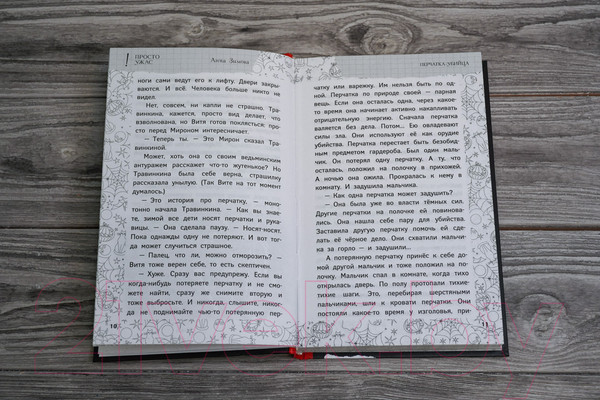 ! ПРОСТО
УЖАС
Анна Зимова
ноги сами ведут его к лифту. Двери закры-
ваются. И всё. Человека больше никто не
видел.
Нет, совсем, ни капли не страшно. Тра-
винкина, кажется, просто вид делает, что
взволнована, но Витя готов поклясться:
про лифт перед Мироном интересничает.
— Теперь ты. — Это Мирон сказал Тра-
винкиной.
Может, хоть она со своим ведьминским
антуражем расскажет что-то жутенькое? Но
Травинкина была себе верна, страшилку
рассказала унылую. (Так Вите на тот момент
думалось.)
— Это история про перчатку, — моно-
тонно начала Травинкина. — Как вы знае-
те, зимой все дети носят перчатки и рука-
вицы. — Она сделала паузу. — Носят-носят.
Пока однажды одну не потеряют. И вот тог-
да может случиться страшное.
— Палец, что ли, можно отморозить? —
Витя тоже верен себе, то есть скептичен.
— Хуже. Сразу вас предупрежу. Если вы
когда-нибудь потеряете перчатку и не смо-
жете найти, сразу же снимите вторую и
тоже выбросьте. И никогда, слышите, никог-
да не поднимайте чью-то потерянную пер-
10
ПЕРЧАТКА-УБИЙЦА
чатку или варежку. Им нельзя быть по од-
ной. Перчатка по природе своей — парная
вещь. Если она осталась одна, через какое-
то время она начинает активно накапливать
отрицательную энергию. Сначала перчатка
валяется без дела. Потом... Ею овладевают
силы зла. Они используют её как орудие
убийства. Перчатка перестает быть безобид-
ным предметом гардероба. Был один маль-
чик. Он потерял одну перчатку. А ту, что
осталась, положил на полочку в прихожей.
А ночью она ожила. Прокралась к нему в
комнату. И задушила мальчика.
— Как одна перчатка может задушить?
— Она была уже во власти тёмных сил.
Другие перчатки на полочке ей повинова-
лись. Она нашла себе пару для убийства.
Заставила другую перчатку помочь ей сде-
лать её чёрное дело. Они схватили мальчи-
ка за горло — и задушили.
А потерянную перчатку принёс к себе до-
мой другой мальчик и тоже положил на по-
лочку. Мальчик спал в комнате, когда тихо
открылась дверь. По полу протопали тихие-
тихие шаги. Это, перебирая шерстяными
пальчиками, шли к кровати перчатки. Они
постояли какое-то время у изголовья, при-
11